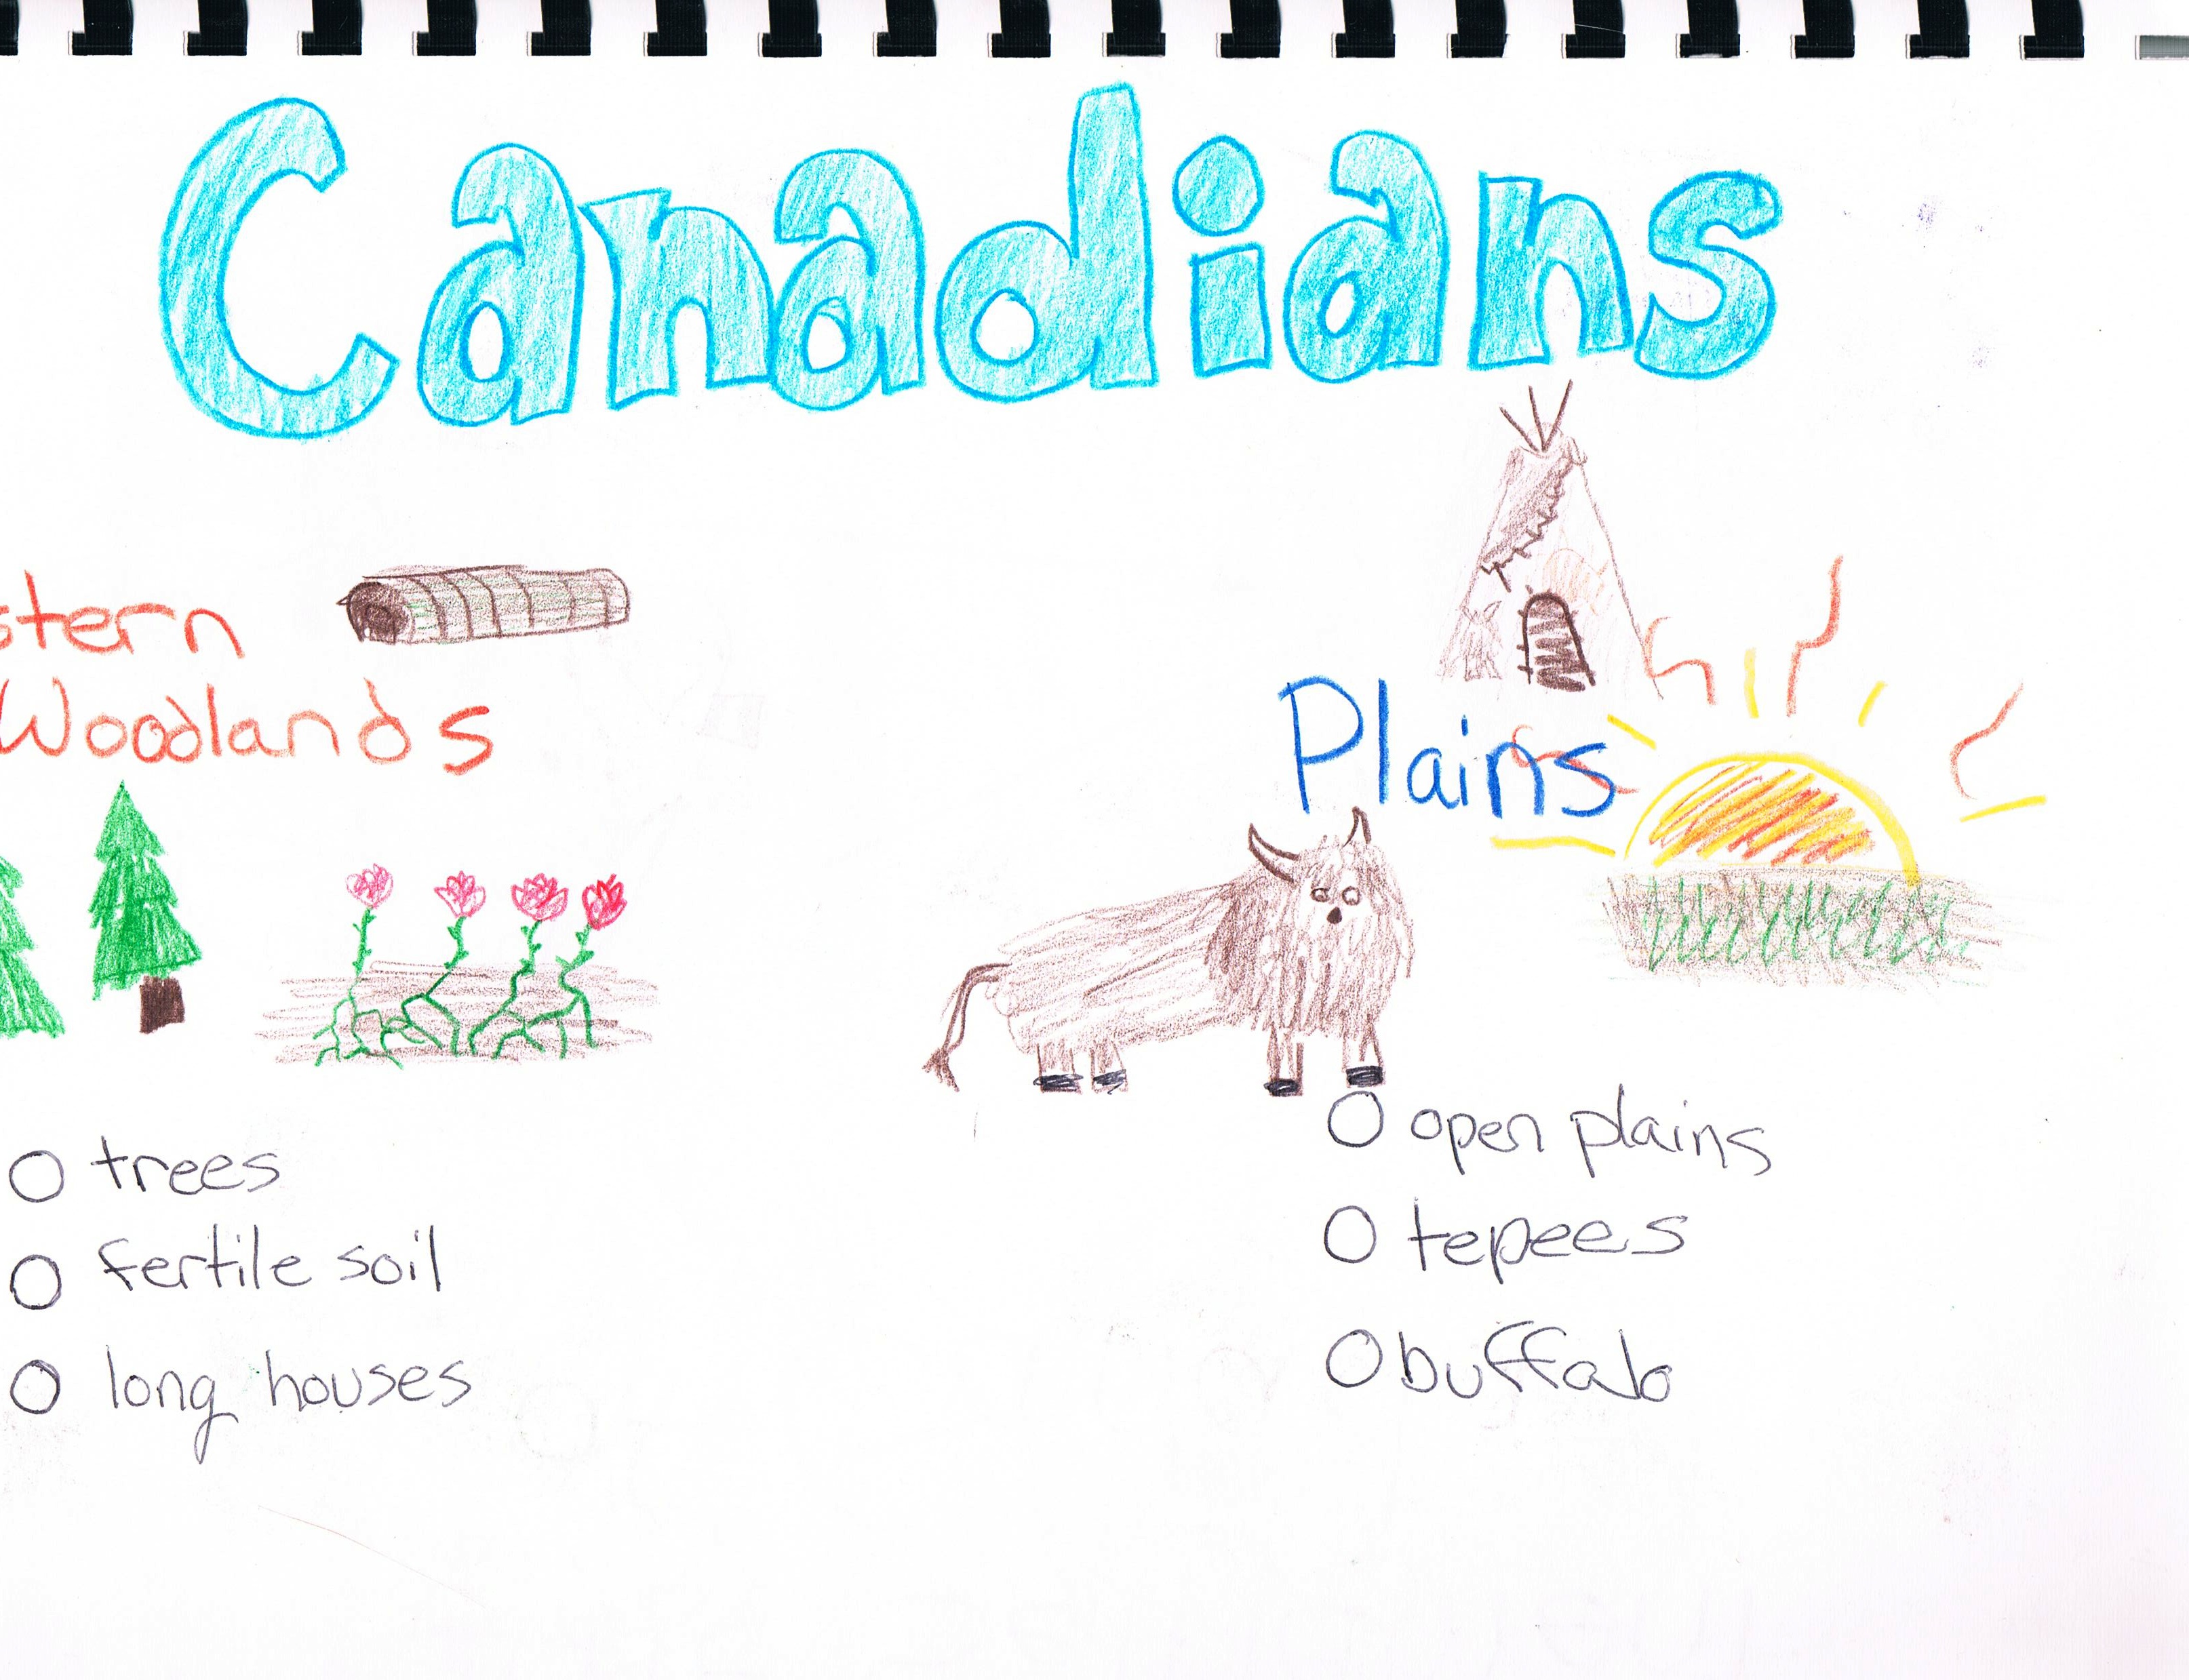 Canadians
stern
Woodlands
Plains
O trees
O fertile soil
O long houses
O open plains
O tepees
O buffalo